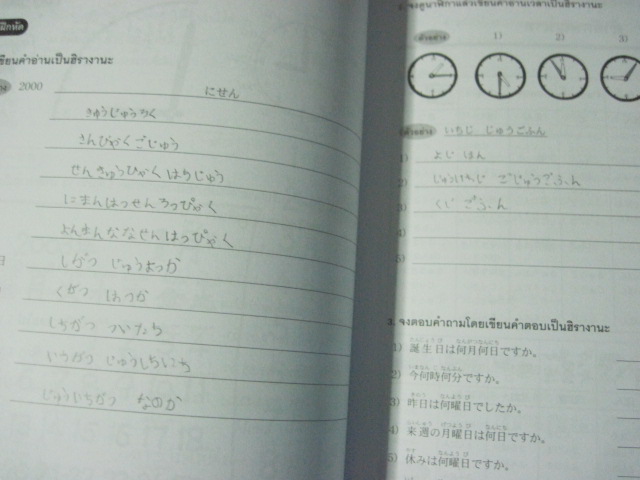 ฝึกหัด
เขียนคำอ่านเป็นฮิรางานะ
2000 にせん
きゅうじゅうろく
さんびゃくごじゅう
せんきゅうひゃくはちじゅう
にまんはっせんろっぴゃく
よんまんななせんはっぴゃく
しがつ じゅうよっか
くがつ はつか
しちがつ ついたち
いちがつ じゅうしちにち
じゅういちがつ なのか
2. จงดูนาฬิกาแล้วเขียนคำอ่านเวลาเป็นฮิรางานะ
ตัวอย่าง 1) 2) 3)
ตัวอย่าง いちじ じゅうごふん
1) よじ はん
2) じゅういちじ ごじゅうごふん
3) くじ ごふん
4)
5)
3. จงตอบคำถามโดยเขียนคำตอบเป็นฮิรางานะ
1) 誕生日は何月何日ですか。
2) 今何時何分ですか。
3) 昨日は何曜日でしたか。
4) 来週の月曜日は何日ですか。
5) 休みは何曜日ですか。